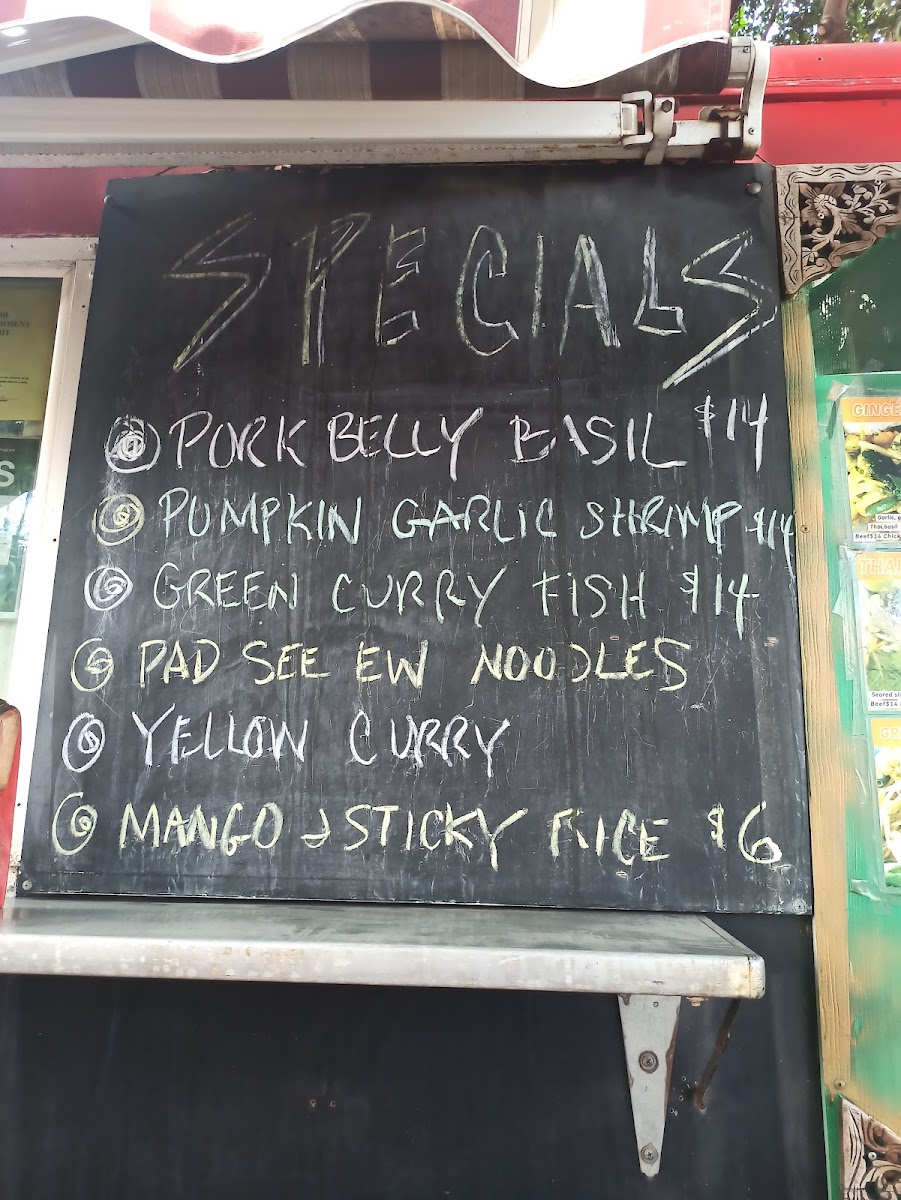 SPECIALS
PORK BELLY BASIL $14
PUMPKIN GARLIC SHRIMP $14
GREEN CURRY FISH $14
PAD SEE EW NOODLES
YELLOW CURRY
MANGO & STICKY RICE $6
S
GINGE
Garlic,
Thai basil
Beef$14 Chick
THAI
Seared
Beef$14
GR